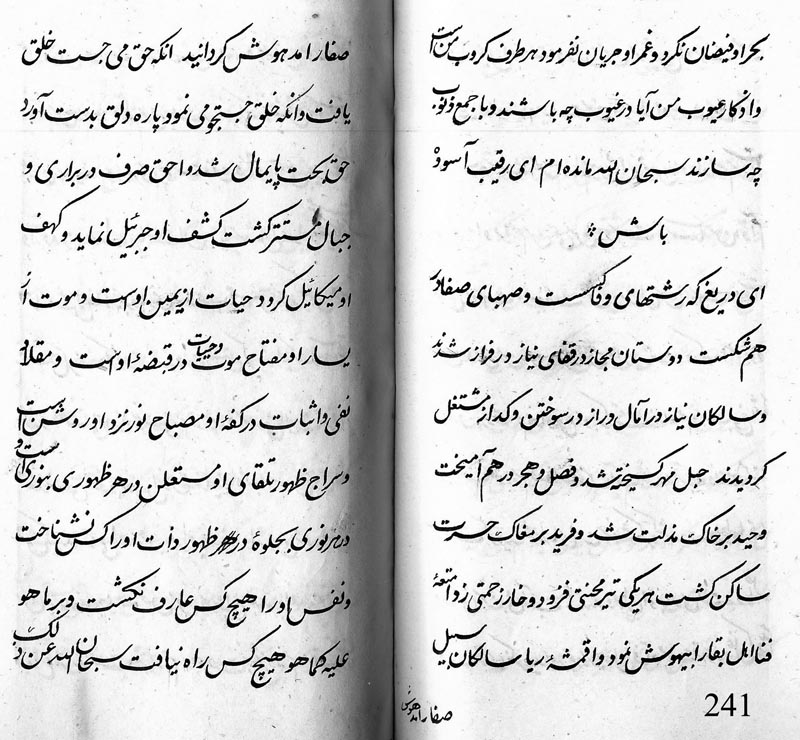 بحر او فیضان نکرد و غمر او جریان نفرمود هر طرف کروب من است
و اذکار عیوب من آیا در غیوب چه باشند و با جمع ذنوب
چه سازند سبحان الله مانده‌ام ای رقیب آسوده
باش
ای دریغ که رشتهای وفا کسست و صهبای صفا در
هم شکست دوستان مجاز در قفای نیاز در فراز شدند
و سالکان نیاز در آمال دراز در سوختن و کداز مشتغل
کردیدند حبل مهر کسیخته شد و فصل و هجر در هم آمیخت
وحید بر خاک مذلت شد و فرید بر مغاک حسرت
ساکن کشت هر یکی تیر محنتی فزود و خار زحمتی زد امتعهٔ
فنا اهل بقا را بیهوش نمود و اقمشهٔ ریا سالکان سبیل
صفا را مدهوش
241
صفا را مدهوش کردانید انکه حق می جست خلق
یافت و انکه خلق جستجو می نمود پاره دلق بدست آورد
حق بحت پایمال شد و احق صرف در براری و
جبال مستتر کشت کشف او جبرئیل نماید و کهف
او میکائیل کرود حیات از یمین اوست و موت از
یسار او مفتاح موت و حیات در قبضهٔ اوست و مقلاد
نفی و اثبات در کفهٔ او مصباح نور نزد او روشن است
و سراج ظهور تلقای او مستعلن در هر ظهوری بنوری است و
در هر نوری بجلوهٔ در هر ظهور ذات او را کس نشناخت
و نفس او را هیچ کس عارف نکشت و بر ما هو
علیه کما هو هیچ کس راه نیافت سبحان الله عن ذلک